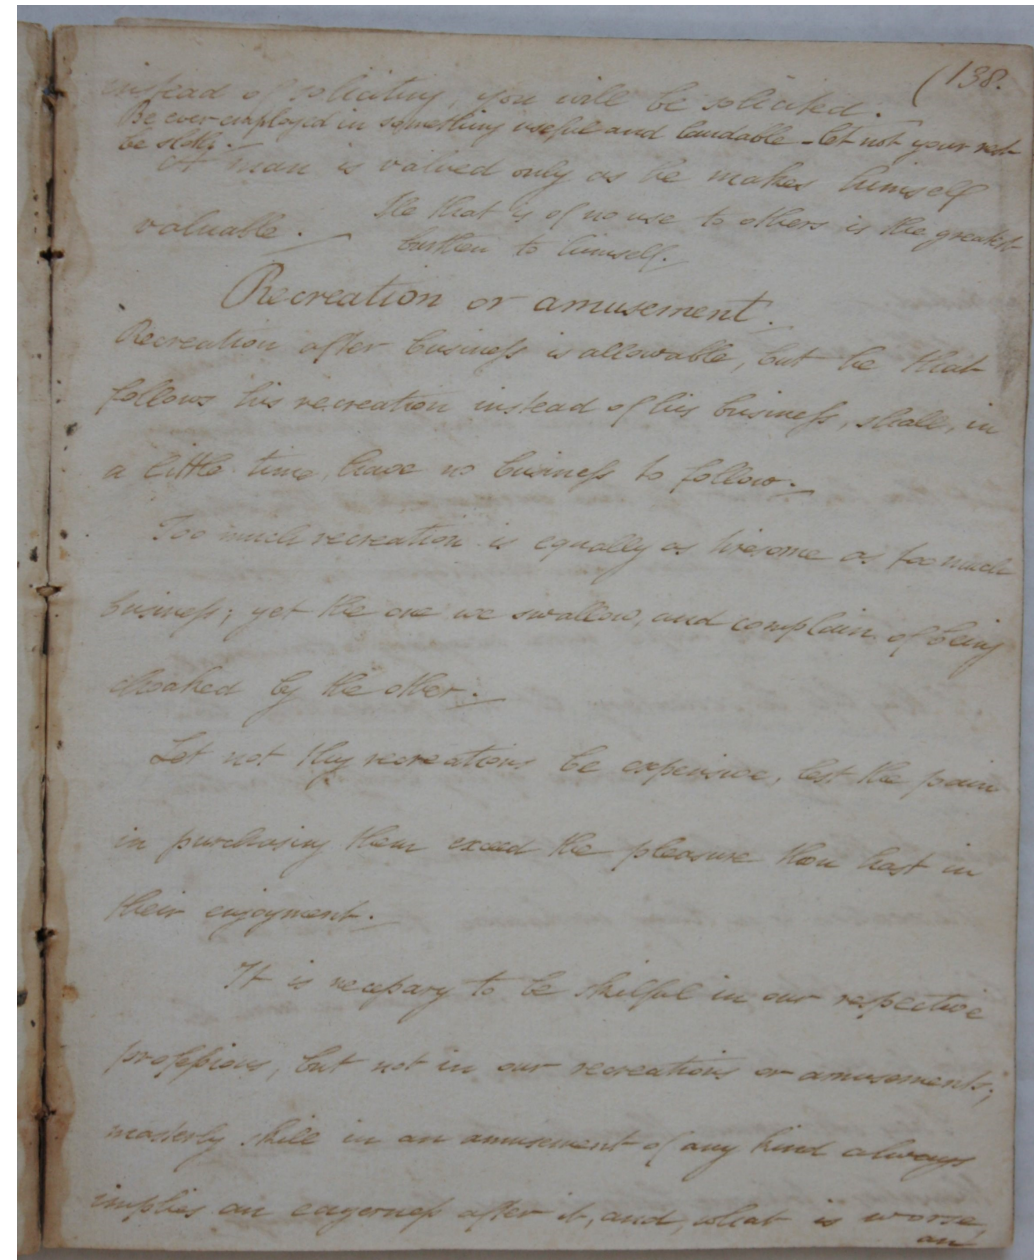 (138.
instead of soliciting, you will be solicited.
Be ever employed in something useful and laudable - let not your rest
be sloth.
A man is valued only as he makes himself
valuable.
He that is of no use to others is the greatest
burthen to himself.
Recreation or amusement.
Recreation after business is allowable, but he that
follows his recreation instead of his business, shall, in
a little time, have no business to follow.
Too much recreation is equally as tiresome as too much
business; yet the one we swallow, and complain of being
choaked by the other.
Let not thy recreations be expensive, lest the pain
in purchasing them exceed the pleasure thou hast in
their enjoyment.
It is necessary to be skilful in our respective
professions, but not in our recreations or amusements;
masterly skill in an amusement of any kind always
implies an eagerness after it, and, what is worse,
an